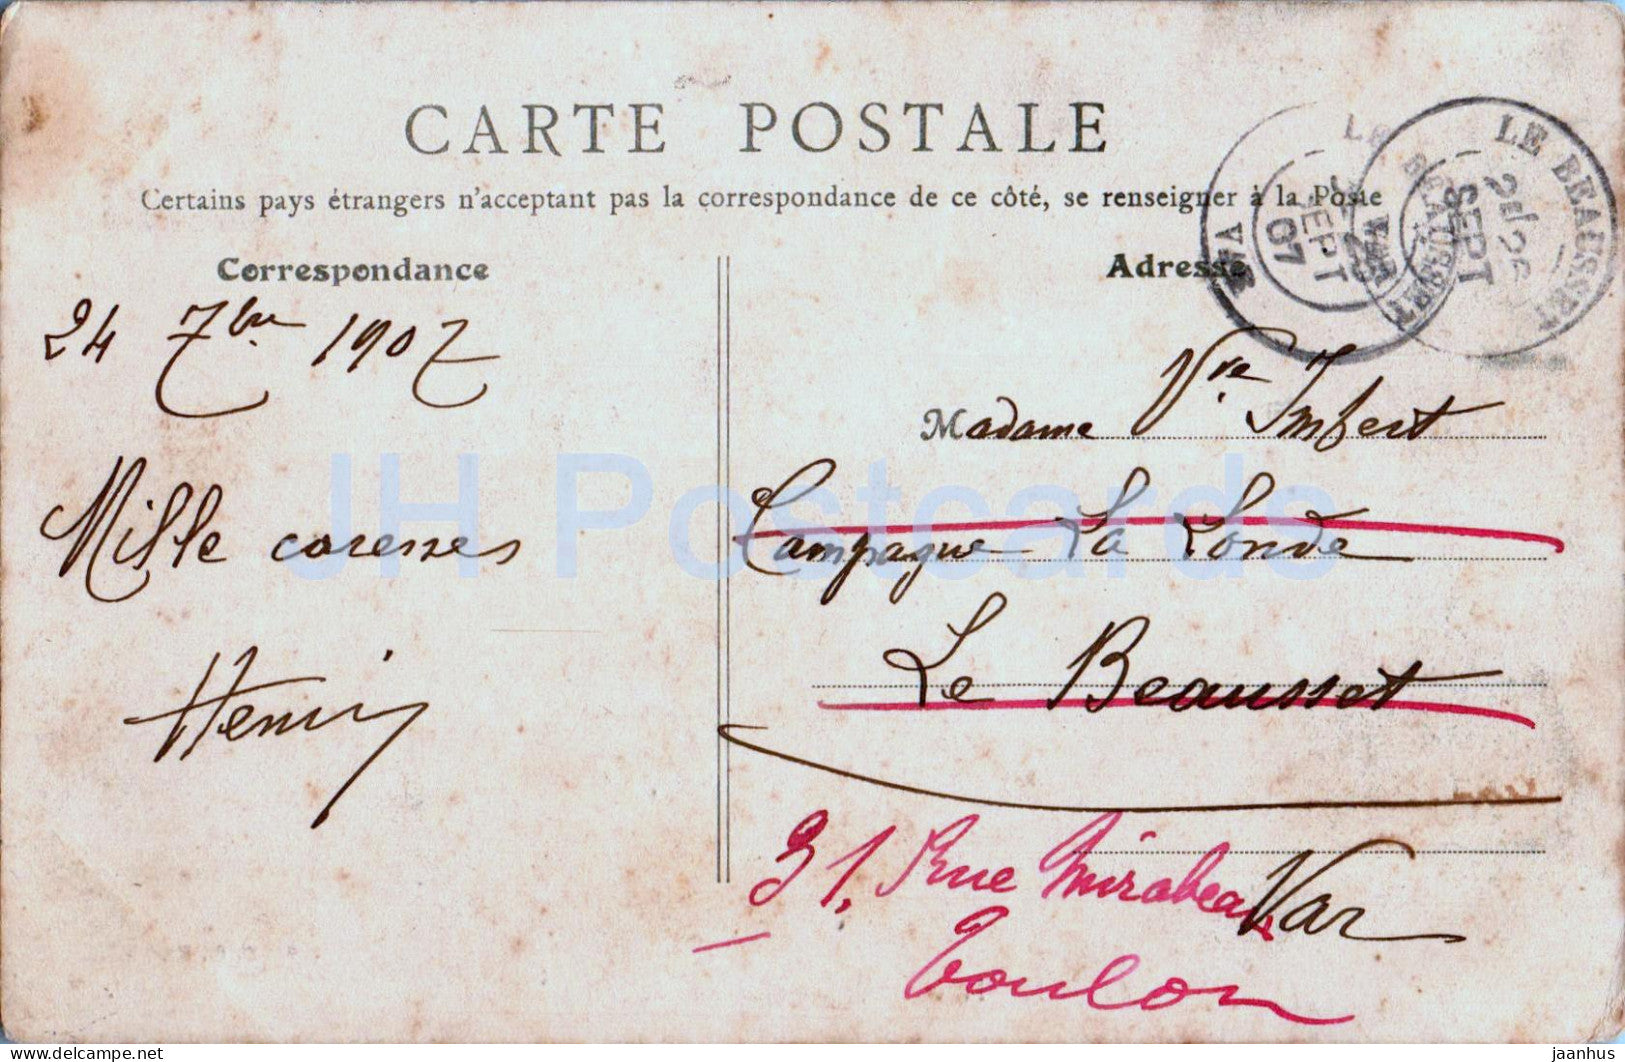 CARTE POSTALE
Certains pays étrangers n'acceptant pas la correspondance de ce côté, se renseigner à la Poste
Correspondance
24 7bre 1907
Mille caresses
Henri
Adresse
Madame Vve Imbert
Campagne La Londe
Le Beausset
Var
31, Rue Mirabeau
Toulon
LE BEAUSSET
SEPT
VAR
LE BEAUSSET
SEPT
07
VAR
JH Postcards
delcampe.net
jaanhus